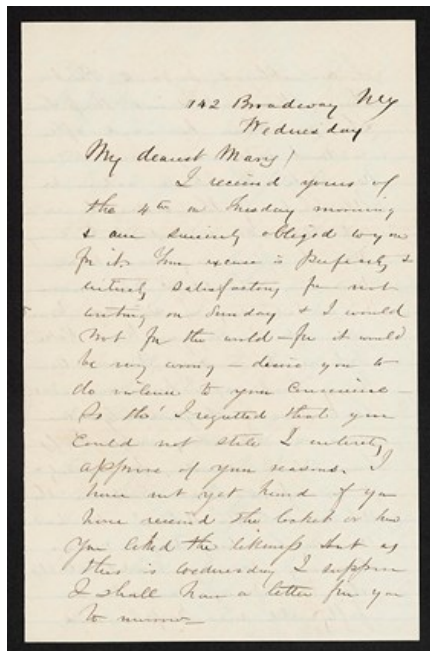 142 Broadway NY
Wednesday
My dearest Mary!
I received yours of
the 4th on Tuesday morning
& am sincerely obliged to you
for it. Your excuse is perfectly &
entirely satisfactory for not
writing on Sunday & I would
not for the world – for it would
be very wrong – desire you to
do violence to your conscience –
So tho' I regretted that you
could not state I entirely
approve of your reasons. I
have not yet heard if you
have received the locket or how
you liked the likeness but as
this is Wednesday I suppose
I shall have a letter from you
to morrow –